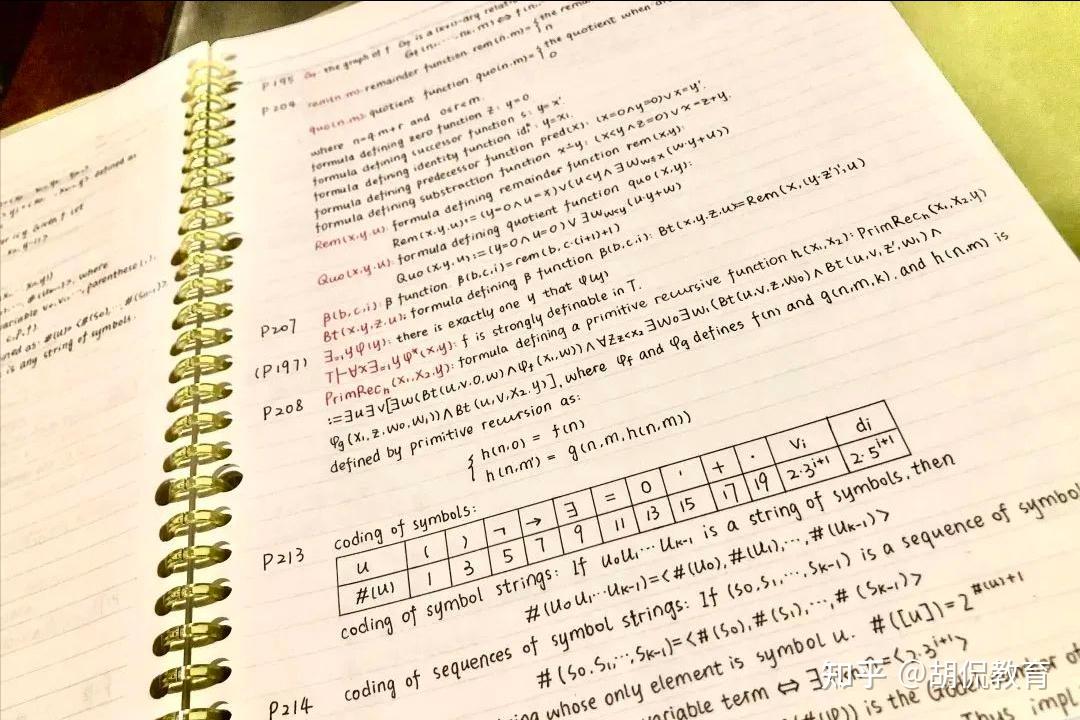 x-y)) defined as
er is y. Given t let
x, y-1))
#(uk-1)>, where
variable v0, v1, ..., parenthese(,),
ned as: #(u)= <#(S0), ..., #(Sk-1)>
is any string of symbols.
P195 Gf: the graph of f Gf is a (k+1)-ary relat
Gf(n1, ..., nk, m) ⇔ f(n
P204 rem(n,m): remainder function rem(n,m)={the remai
n
quo(n,m): quotient function quo(n,m)={the quotient when
0
where n=q·m+r and 0≤r<m.
formula defining zero function z: y=0
formula defining successor function s: y=x'
formula defining identity function id: y=xi
formula defining predecessor function pred(x): (x=0∧y=0)∨x=y'.
formula defining substraction function x∸y: (x<y∧z=0)∨x=z+y.
Rem(x,y,u): formula defining remainder function rem(x,y):
Rem(x,y,u):=(y=0∧u=x)∨(u<y∧∃w w≤x (w·y+u))
Quo(x,y,u): formula defining quotient function quo(x,y):
Quo(x,y,u):=(y=0∧u=0)∨∃w w<y (u·y+w)
P207 β(b,c,i): β function. β(b,c,i)=rem(b,c·(i+1)+1)
Bt(x,y,z,u): formula defining β function β(b,c,i): Bt(x,y,z,u)=Rem(x,(y·z')',u)
(P197) ∃=1yφ(y): there is exactly one y that φ(y)
T⊢∀x∃=1yφ*(x,y): f is strongly definable in T.
P208 PrimRech(x1,x2,y): formula defining a primitive recursive function h(x1,x2): PrimRech(x1,x2,y)
:=∃u∃v[∃w(Bt(u,v,0,w)∧φf(x1,w))∧∀z z<x2 ∃w0∃w1(Bt(u,v,z,w0)∧Bt(u,v,z',w1)∧
φg(x1,z,w0,w1))∧Bt(u,v,x2,y)], where φf and φg defines f(n) and g(n,m,k), and h(n,m) is
defined by primitive recursion as:
{h(n,0) = f(n)
h(n,m') = g(n,m,h(n,m))
P213 coding of symbols:
u ( ) ¬ → ∃ = 0 ' + · vi di
#(u) 1 3 5 7 9 11 13 15 17 19 2·3^i+1 2·5^i+1
coding of symbol strings: If u0u1...uk-1 is a string of symbols, then
#(u0u1...uk-1)=<#(u0),#(u1),...,#(uk-1)>
coding of sequences of symbol strings: If (S0,S1,...,Sk-1) is a sequence of symbol
#(S0,S1,...,Sk-1)=<#(S0),#(S1),...,#(Sk-1)>
P214 whose only element is symbol u. #([u])=2^#(u)+1
variable term ⇔ =<2·3^i+1>
is the Gödel number of
Thus impl
知乎 @胡侃教育